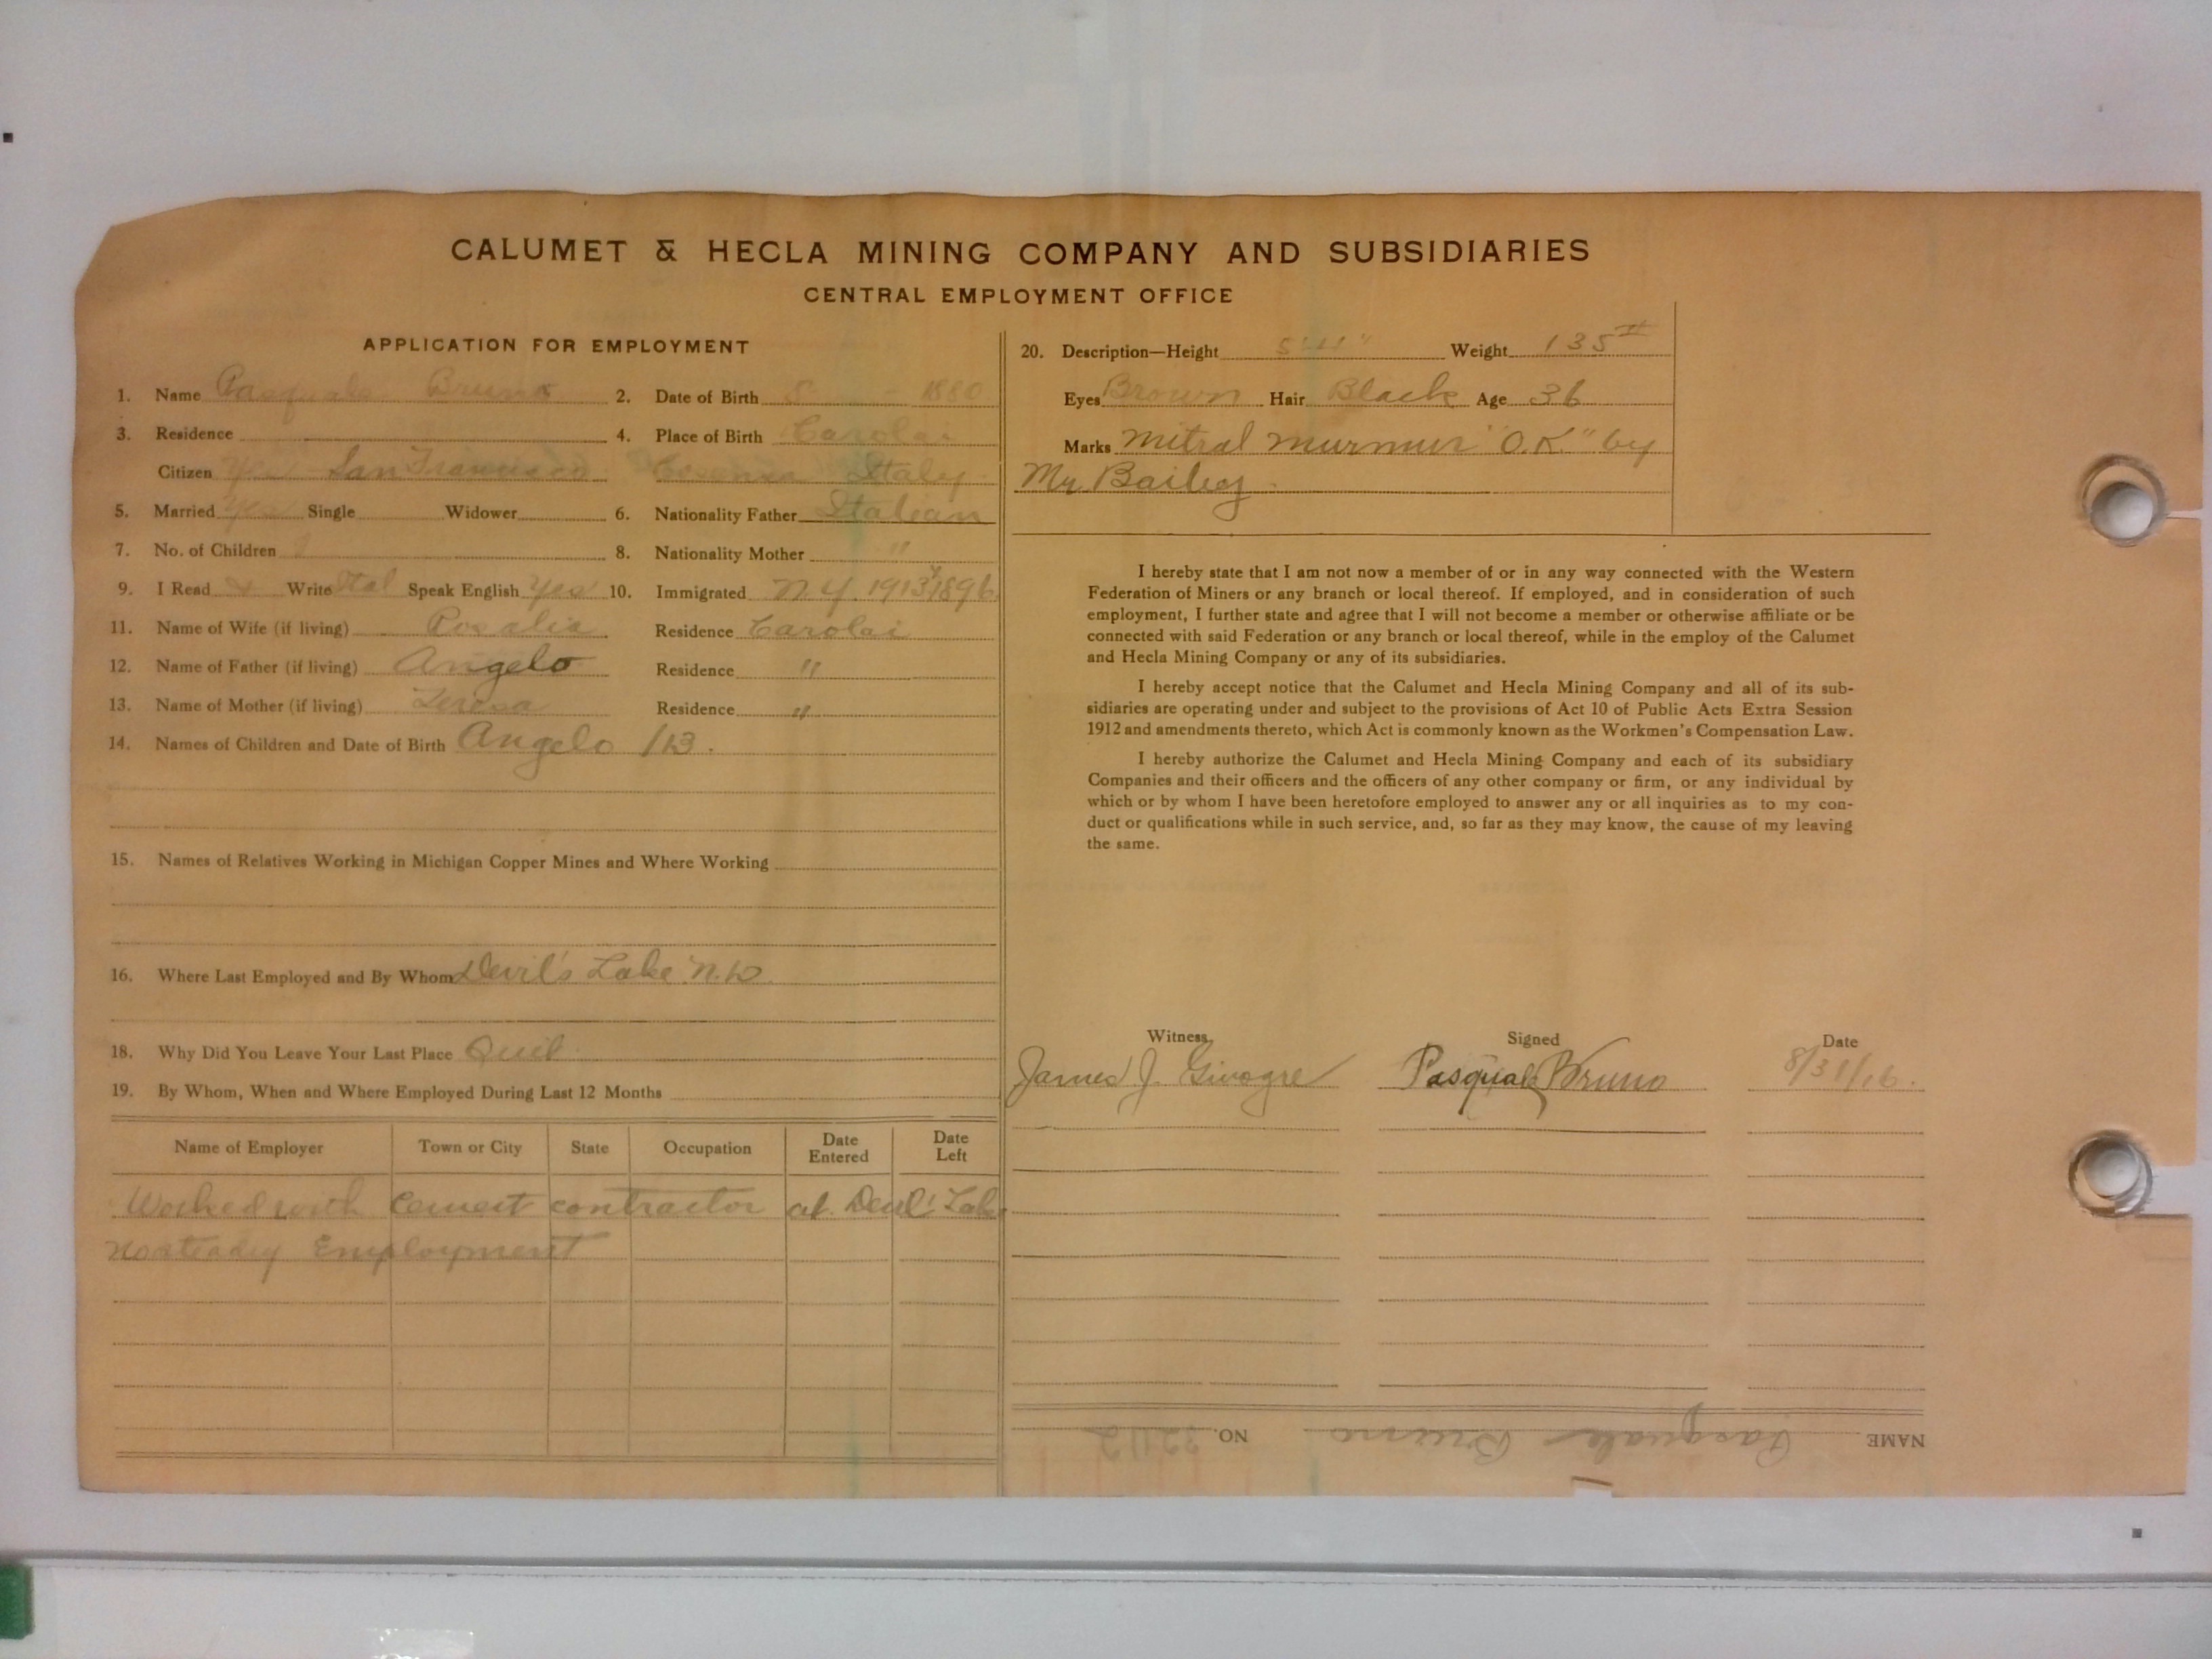 CALUMET & HECLA MINING COMPANY AND SUBSIDIARIES
CENTRAL EMPLOYMENT OFFICE
APPLICATION FOR EMPLOYMENT
1. Name Pasquale Bruno 2. Date of Birth 1880
3. Residence 4. Place of Birth Carolai
Citizen Yes San Francisco Cosenza Italy
5. Married Yes Single Widower 6. Nationality Father Italian
7. No. of Children 8. Nationality Mother "
9. I Read & Write Ital Speak English Yes 10. Immigrated N.Y. 1913 1896
11. Name of Wife (if living) Rosalia Residence Carolai
12. Name of Father (if living) Angelo Residence "
13. Name of Mother (if living) Teresa Residence "
14. Names of Children and Date of Birth Angelo
15. Names of Relatives Working in Michigan Copper Mines and Where Working
16. Where Last Employed and By Whom Devil's Lake N.D.
18. Why Did You Leave Your Last Place Quit
19. By Whom, When and Where Employed During Last 12 Months
Name of Employer Town or City State Occupation Date Entered Date Left
Worked with Cement contractor at Devil's Lake
No steady Employment
20. Description—Height Weight 135 #
Eyes Brown Hair Black Age 36
Marks Mitral murmur "O.K." by
Mr Bailey
I hereby state that I am not now a member of or in any way connected with the Western
Federation of Miners or any branch or local thereof. If employed, and in consideration of such
employment, I further state and agree that I will not become a member or otherwise affiliate or be
connected with said Federation or any branch or local thereof, while in the employ of the Calumet
and Hecla Mining Company or any of its subsidiaries.
I hereby accept notice that the Calumet and Hecla Mining Company and all of its sub-
sidiaries are operating under and subject to the provisions of Act 10 of Public Acts Extra Session
1912 and amendments thereto, which Act is commonly known as the Workmen's Compensation Law.
I hereby authorize the Calumet and Hecla Mining Company and each of its subsidiary
Companies and their officers and the officers of any other company or firm, or any individual by
which or by whom I have been heretofore employed to answer any or all inquiries as to my con-
duct or qualifications while in such service, and, so far as they may know, the cause of my leaving
the same.
Witness Signed Date
James J. Pasquale Bruno 8/31/16.
NAME Pasquale Bruno NO.